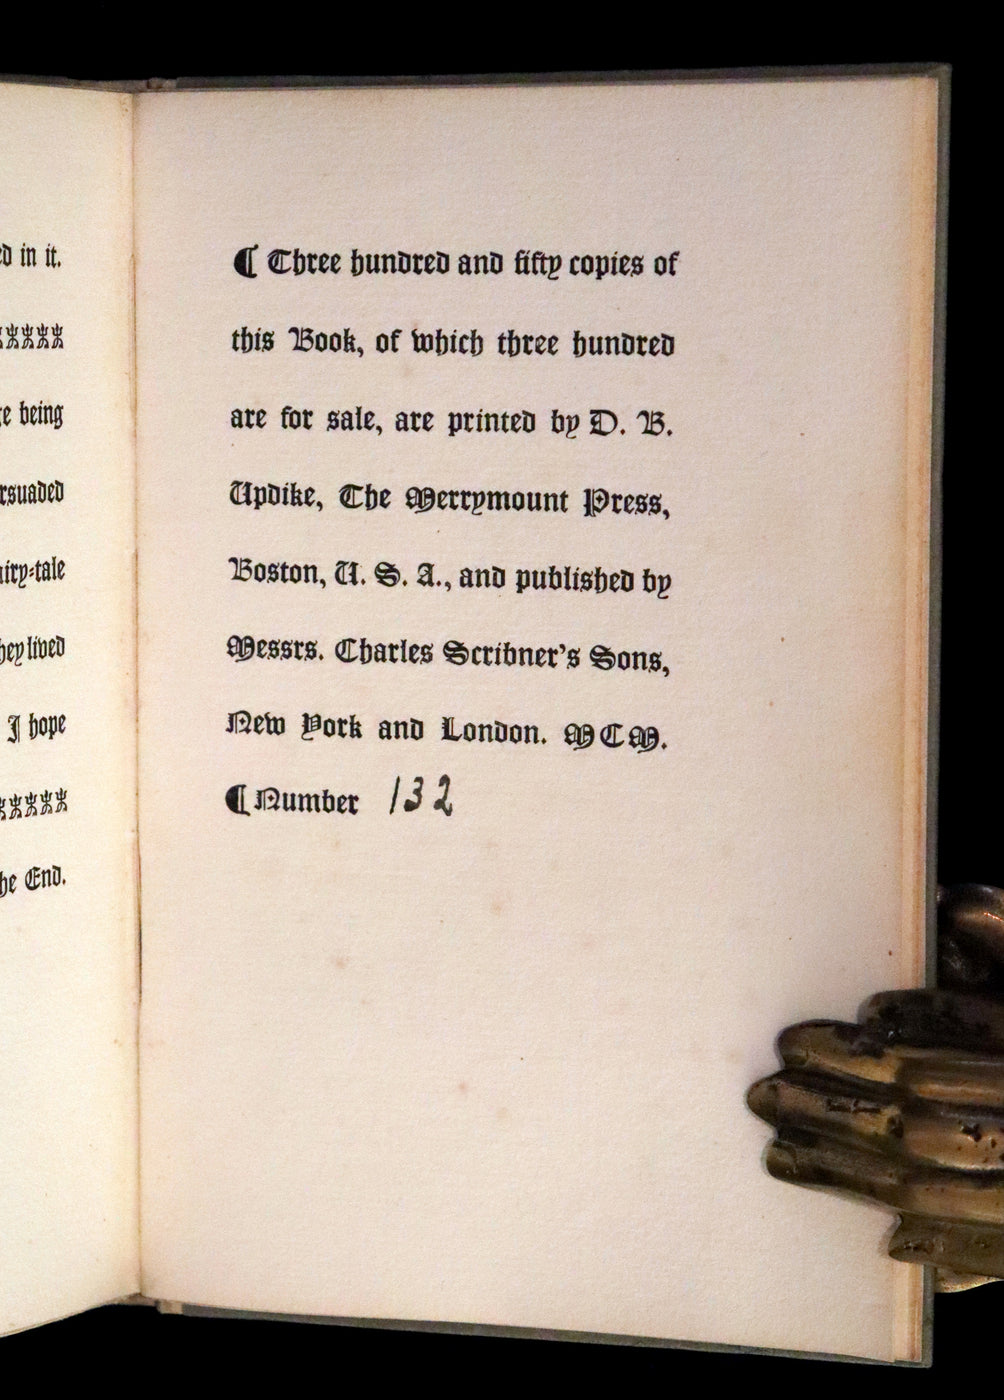 ed in it.
e being
rsuaded
airy-tale
hey lived
I hope
he End.
¶ Three hundred and fifty copies of
this Book, of which three hundred
are for sale, are printed by D. B.
Updike, The Merrymount Press,
Boston, U. S. A., and published by
Messrs. Charles Scribner's Sons,
New York and London. MCM.
¶ Number 132